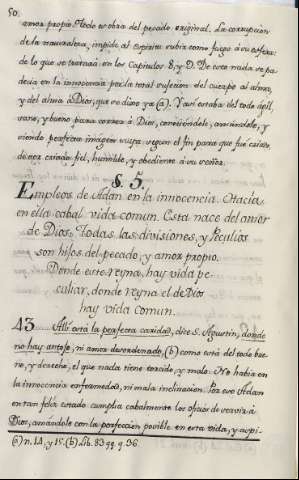 50.
amor propio. Todo es obra del pecado original. La corrupcion
de la naturaleza, impide al espiritu subir como fuego à su esfera:
de lo que se tratarà en los Capitulos 8, y 9. De esto nada se pa-
decia en la innocencia por la total sujecion del cuerpo al alma,
y del alma à Dios, que se dixo ya (a). Y asi estaba del todo agil,
sano, y bueno para correr à Dios, conociendole, amandole, y
siendo perfecta imagen suya segun el fin para que fue criado,
de ser criado fiel, humilde, y obediente à su señor.
§. 5.
Empleos de Adan en la innocencia. Hacia
en ella cabal vida comun. Esta nace del amor
de Dios. Todas las divisiones, y Peculios
son hijos del pecado, y amor propio.
Donde este reyna, hay vida pe-
culiar, donde reyna el de Dios
hay vida comun.
43 Alli està la perfecta caridad, dice S. Agustin, donde
no hay antojo, ni amor desordenado, (b) como està del todo bue-
no, y derecho, el que nada tiene torcido, y malo. No habia en
la innocencia enfermedad, ni mala inclinacion. Por eso Adan
en tan feliz estado cumplia cabalmente los oficios de servir à
Dios, amandole con la perfeccion posible en esta vida, y aspi-
(a) n. 14, y 15. (b) Lib. 83 qq. q. 36.